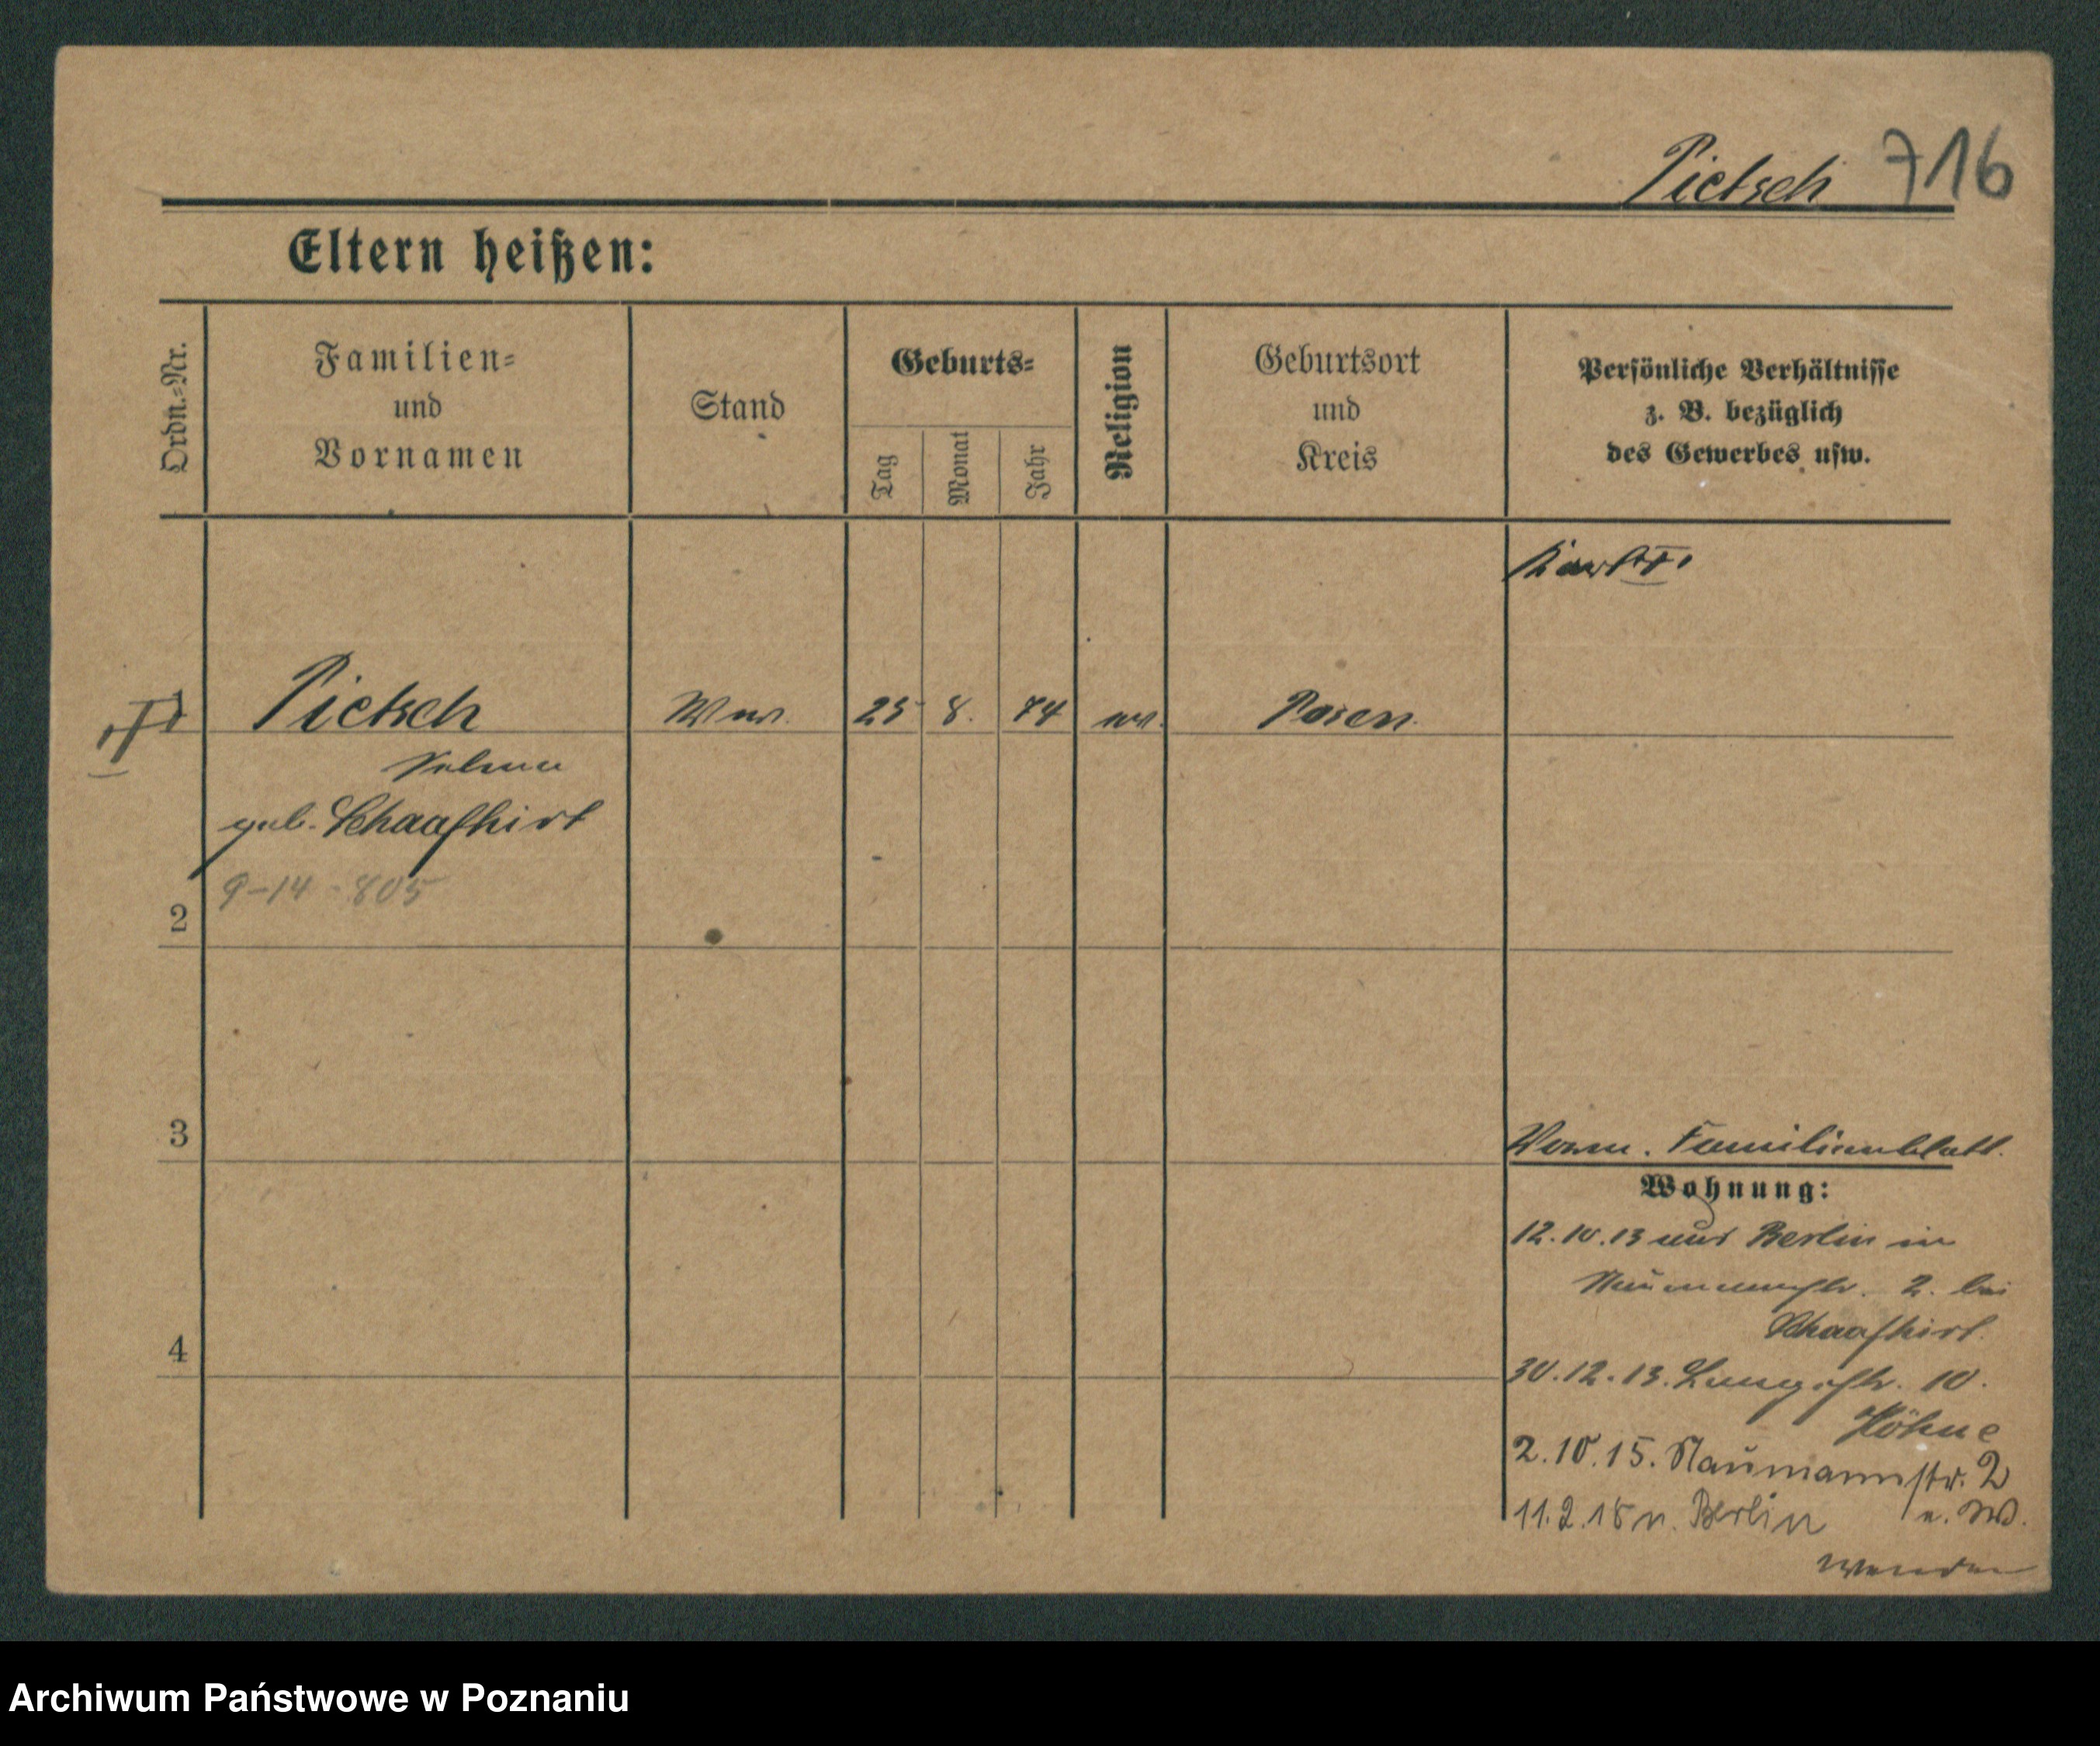 Pietsch 716
Eltern heißen:
Ordn.=Nr.
Familien=
und
Vornamen
Stand
Geburts=
Tag
Monat
Jahr
Religion
Geburtsort
und
Kreis
Persönliche Verhältnisse
z. B. bezüglich
des Gewerbes usw.
1 Pietsch Ww. 25 8. 74 Posen.
Selma
geb. Schaafhirt
9-14-805
2
3
Familienblatt.
Wohnung:
12.10.13 aus Berlin in
Naumannstr. 2. bei
Schaafhirt.
4
30.12.13. Langestr. 10.
Höhne
2.10.15. Naumannstr. 2
11.2.18 n. Berlin
wenden
Archiwum Państwowe w Poznaniu